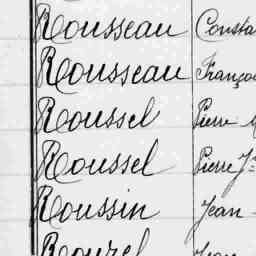 Rousseau Consta
Rousseau Franço
Roussel Pierre
Roussel Pierre Jn
Roussin Jean
Rouzel Jean